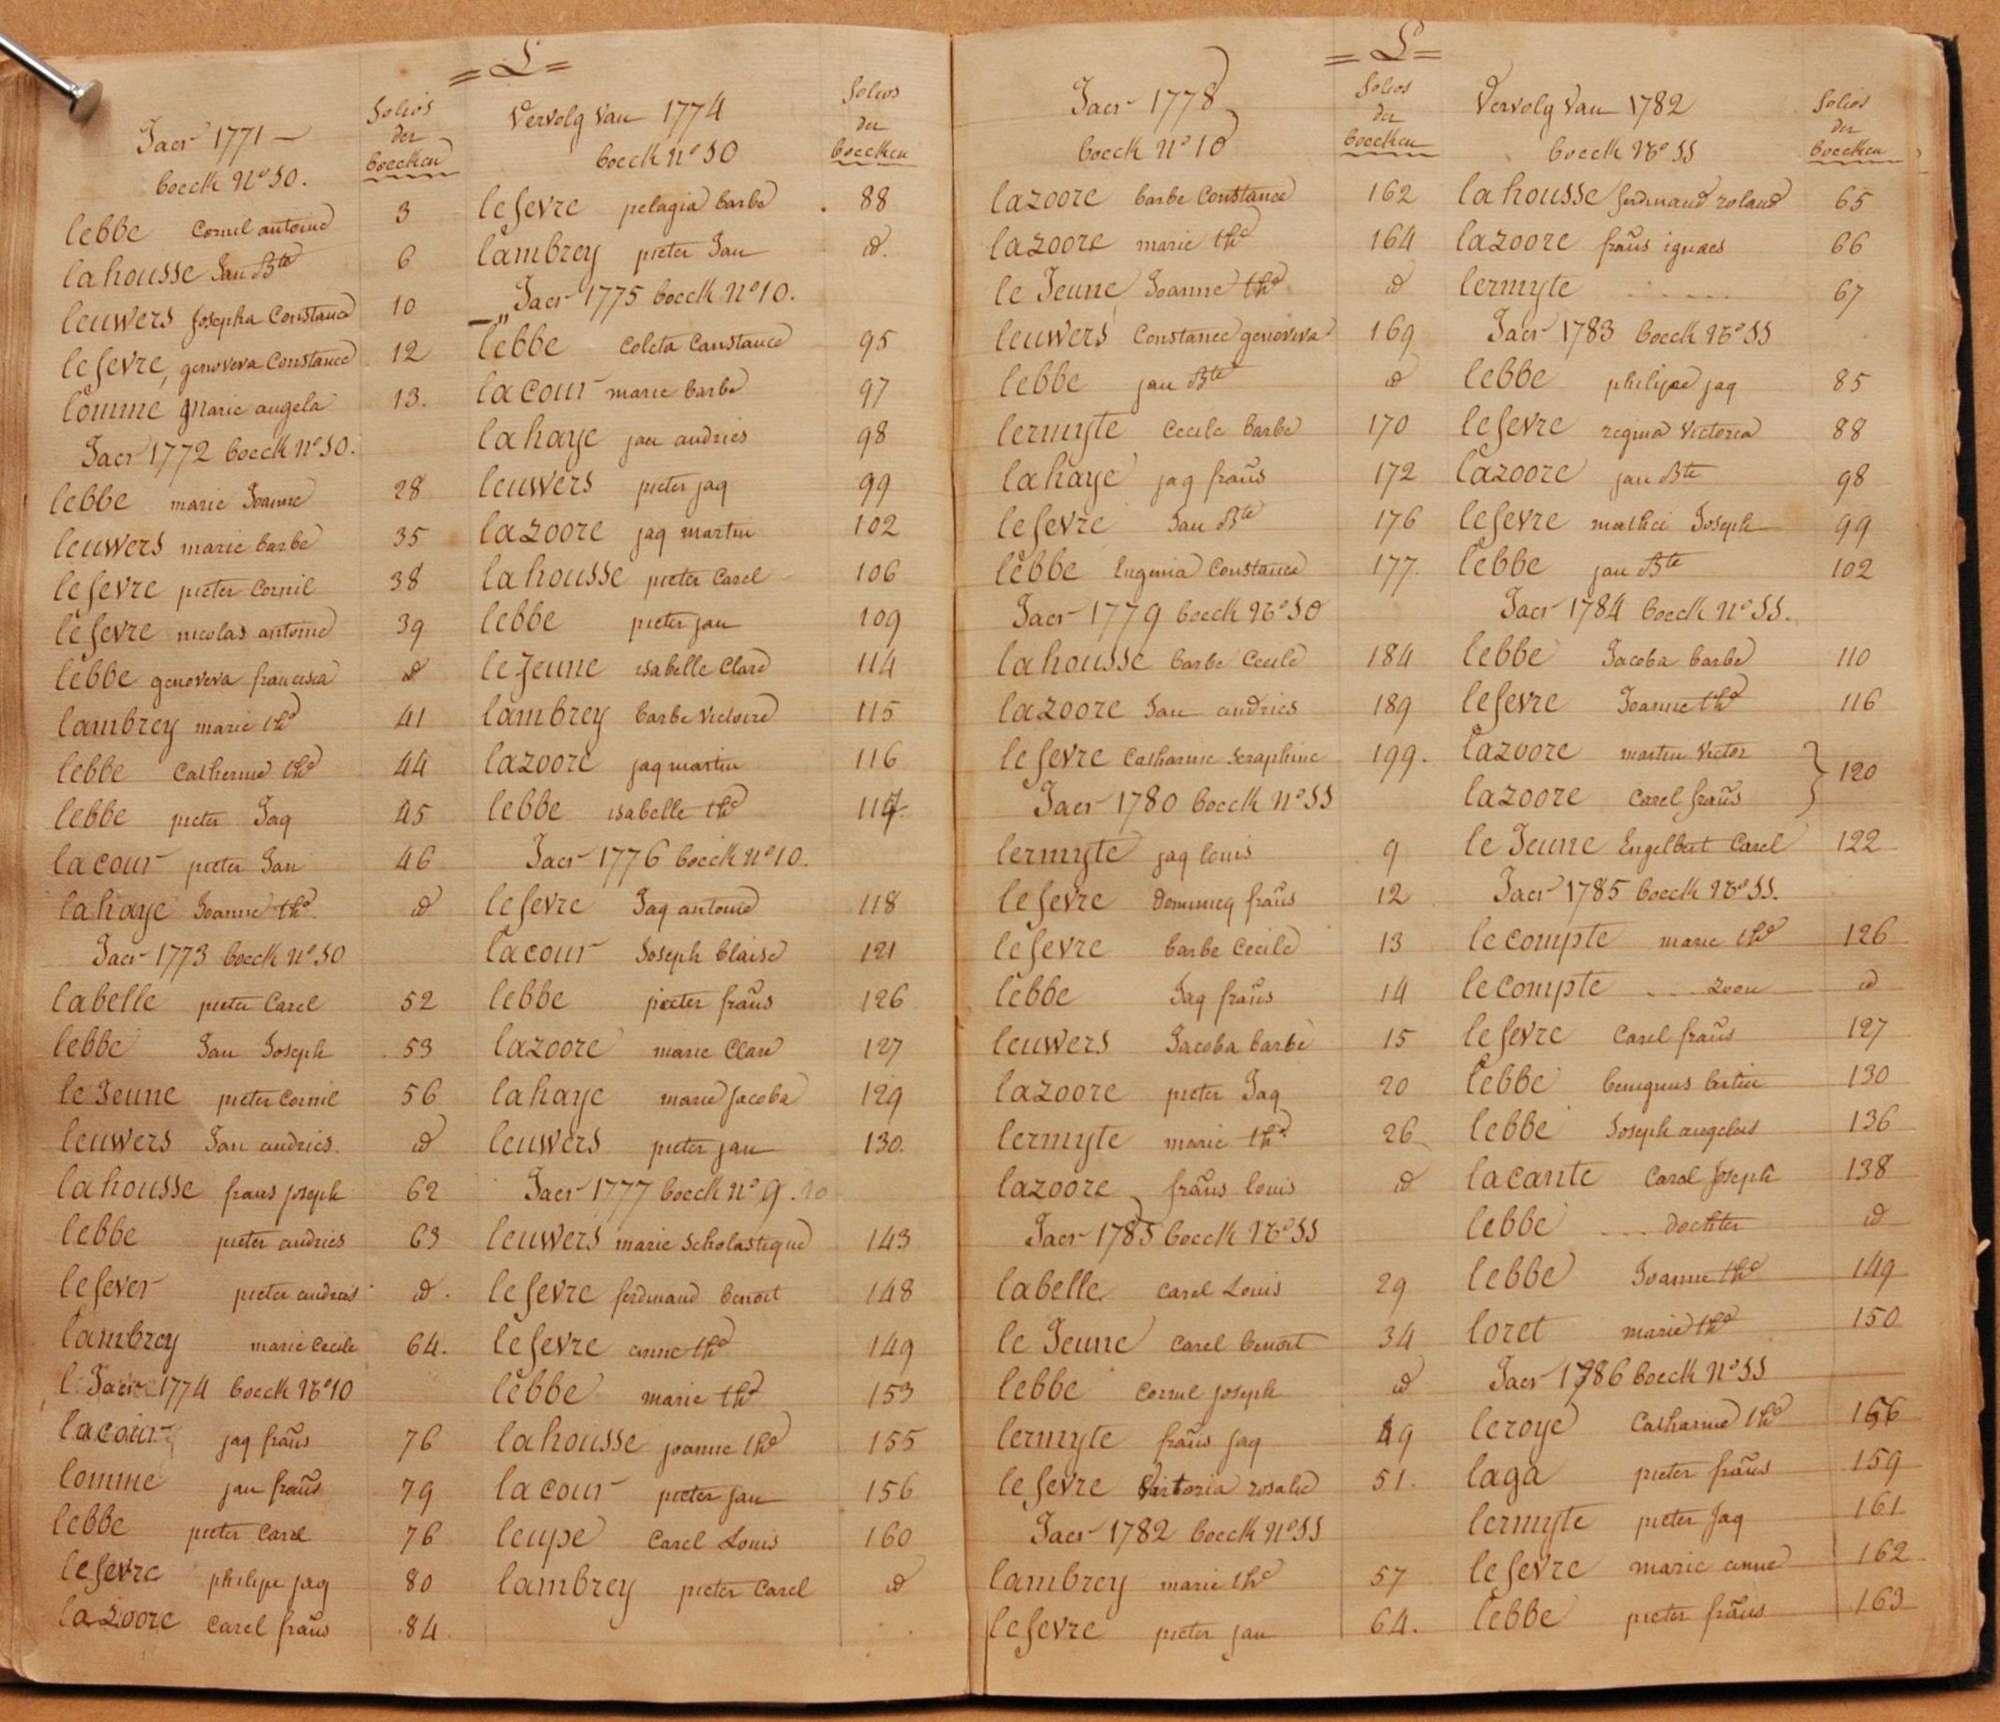 = L =
Jaer 1771 —
boeck N° 10.
folios der boecken
lebbe Cornil antoine 3
lahousse Jan Bte 6
leuwers Josepha Constance 10
lefevre, genoveva Constance 12
lomme Marie angela 13.
Jaer 1772 boeck N° 10.
lebbe marie Joanne 28
leuwers marie barbe 35
lefevre pieter Cornil 38
lefevre nicolas antoine 39
lebbe genoveva francisca id
lambrey marie the 41
lebbe Catherine the 44
lebbe pieter Jaq 45
lacour pieter Jan 46
lahaye Joanne the id
Jaer 1773 boeck N° 10
labelle pieter Carel 52
lebbe Jan Joseph 53
le Jeune pieter Cornil 56
leuwers Jan andries id
lahousse frans Joseph 62
lebbe pieter andries 63
lefever pieter andries id.
lambrey marie Cecile 64.
Jaer 1774 boeck N° 10
lacour jaq frans 76
lomme jan frans 79
lebbe pieter Carel 76
lefevre philipe jaq 80
lazoore Carel frans 84
Vervolg Van 1774
boeck N° 10
folios der boecken
lefevre pelagia barbe 88
lambrey pieter Jan id.
Jaer 1775 boeck N° 10.
lebbe Coleta Constance 95
lacour marie barbe 97
lahaye jan andries 98
leuwers pieter jaq 99
lazoore jaq martin 102
lahousse pieter Carel 106
lebbe pieter jan 109
le Jeune isabelle Clare 114
lambrey barbe Victoire 115
lazoore jaq martin 116
lebbe isabelle the 117
Jaer 1776 boeck N° 10.
lefevre Jaq antoine 118
lacour Joseph blaise 121
lebbe pieter frans 126
lazoore marie Clare 127
lahaye marie Jacoba 129
leuwers pieter jan 130.
Jaer 1777 boeck N° 9. 10
leuwers marie Scholastique 143
lefevre ferdinand benoit 148
lefevre anne the 149
lebbe marie the 153
lahousse joanne the 155
lacour pieter jan 156
leupe Carel Louis 160
lambrey pieter Carel id
= L =
Jaer 1778
boeck N° 10
folios der boecken
lazoore barbe Constance 162
lazoore marie the 164
le Jeune Joanne the id
leuwers Constance genoviva 169
lebbe jan Bte id
lermyte Cecile barbe 170
lahaye jaq frans 172
lefevre Jan Bte 176
lebbe Eugenia Constance 177
Jaer 1779 boeck N° 10
lahousse barbe Cecile 184
lazoore Jan andries 189
lefevre Catharine Seraphine 199.
Jaer 1780 boeck N° 11
lermyte jaq louis 9
lefevre Dominicq frans 12
lefevre barbe Cecile 13
lebbe Jaq frans 14
leuwers Jacoba barbe 15
lazoore pieter Jaq 20
lermyte marie the 26
lazoore frans louis id
Jaer 1785 boeck N° 11
labelle Carel Louis 29
le Jeune Carel benoit 34
lebbe Cornil joseph id
lermyte frans jaq 49
lefevre Victoria rosalie 51.
Jaer 1782 boeck N° 11
lambrey marie the 57
lefevre pieter jan 64.
Vervolg Van 1782
boeck N° 11
folios der boecken
lahousse ferdinand roland 65
lazoore frans ignaes 66
lermyte . . . . . 67
Jaer 1783 boeck N° 11
lebbe philipe jaq 85
lefevre regina Victoria 88
lazoore jan Bte 98
lefevre mathei Joseph 99
lebbe jan Bte 102
Jaer 1784 boeck N° 11.
lebbe Jacoba barbe 110
lefevre Joanne the 116
lazoore martin Victor
lazoore Carel frans } 120
le Jeune Engelbert Carel 122
Jaer 1785 boeck N° 11.
lecompte marie the 126
lecompte . . . . zoon id
lefevre Carel frans 127
lebbe benignus bertin 130
lebbe Joseph angelus 136
lacante Carol Joseph 138
lebbe . . . . dochter id
lebbe Joanne the 149
loret marie the 150
Jaer 1786 boeck N° 11
leroye Catharine the 156
laga pieter frans 159
lermyte pieter Jaq 161
lefevre marie anne 162
lebbe pieter frans 163